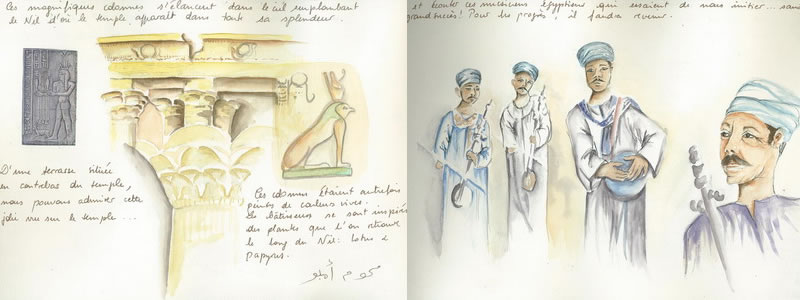 Ces magnifiques colonnes s'élancent dans le ciel surplombant
le Nil d'où le temple apparaît dans toute sa splendeur...
D'une terrasse située
en contrebas du temple,
nous pouvons admirer cette
jolie vue sur le temple ...
Ces colonnes étaient autrefois
peintes de couleurs vives.
Les bâtisseurs se sont inspirés
des plantes que l'on retrouve
le long du Nil: Lotus &
papyrus.
كوم أمبو
et écouter ces musiciens égyptiens qui essaient de nous initier... sans
grand succès! Pour les progrès, il faudra revenir.